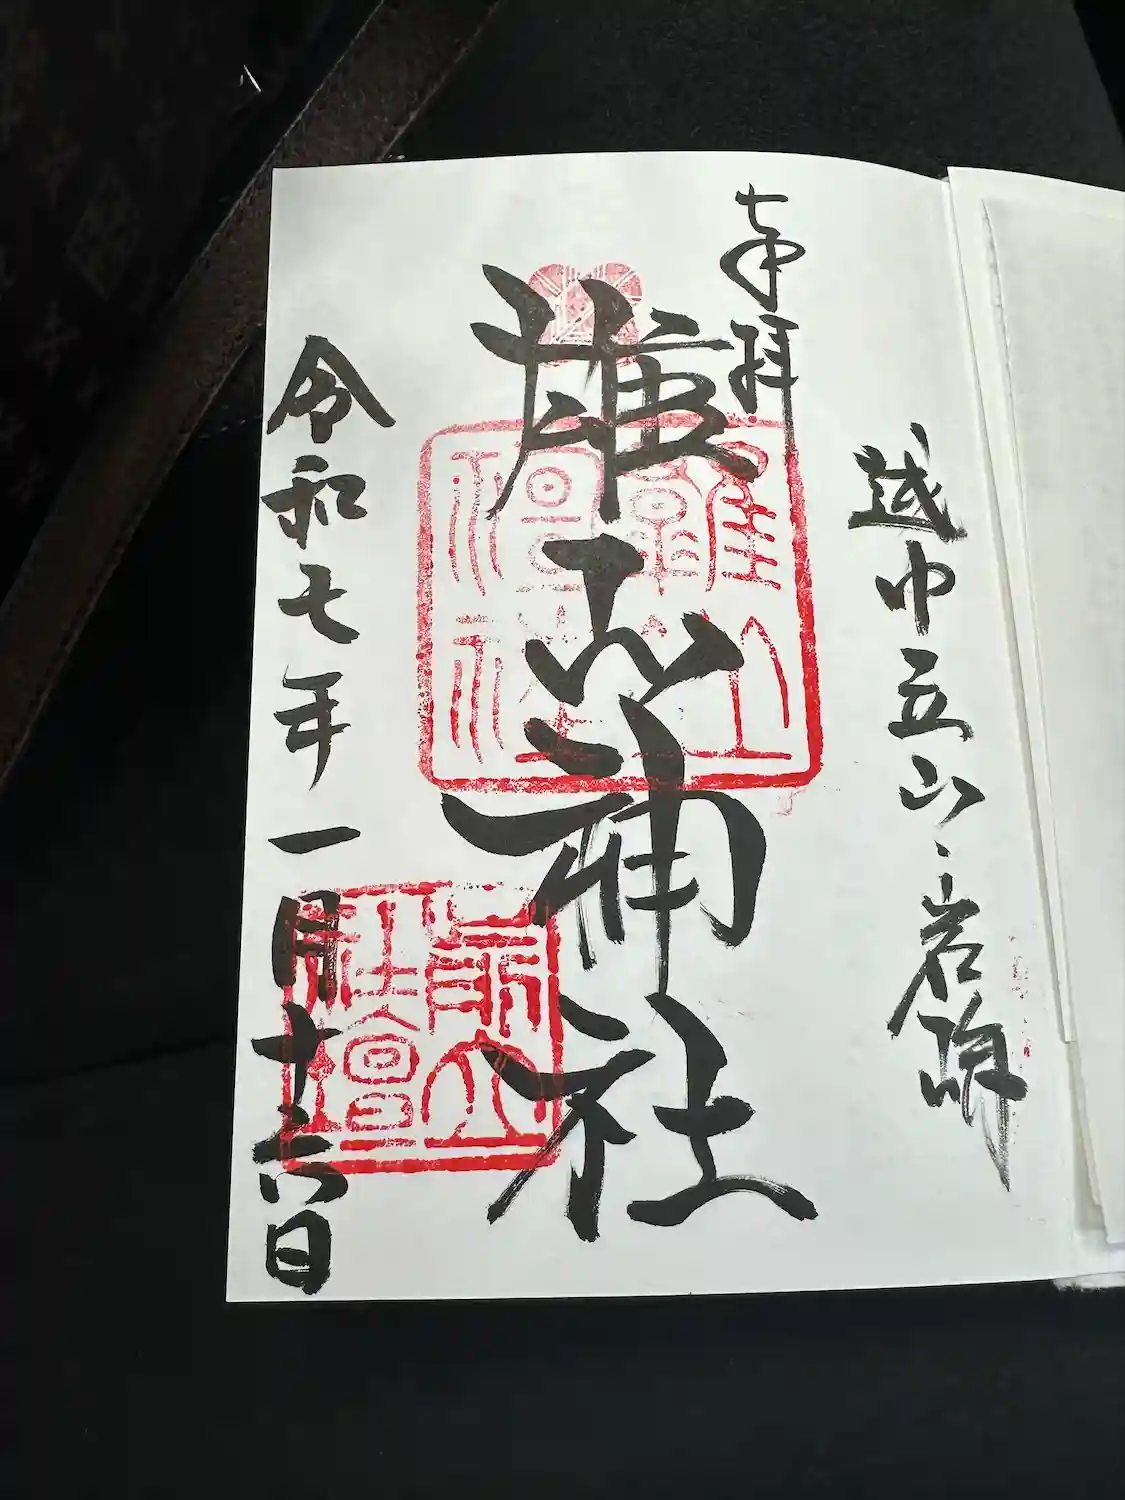 奉拝
越中立山、岩峅
雄山神社
令和七年一月十六日
雄山
神社
前立
社壇